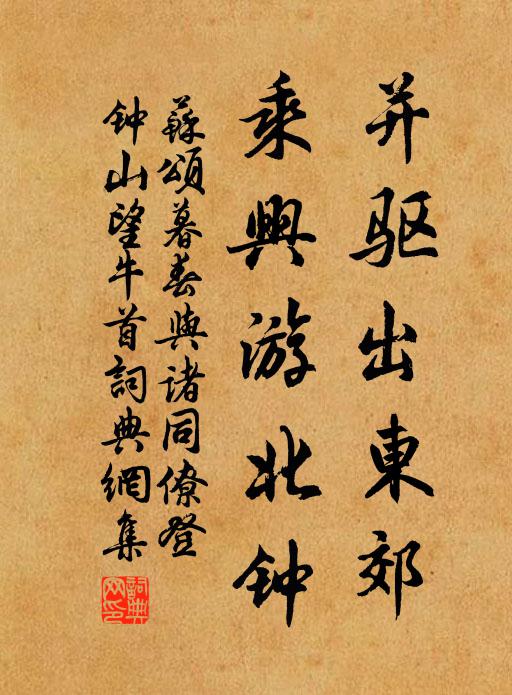 并驱出東郊
乘興游北钟
蘇頌暮春與诸同僚登
钟山望牛首詞典網集
詞典
网印